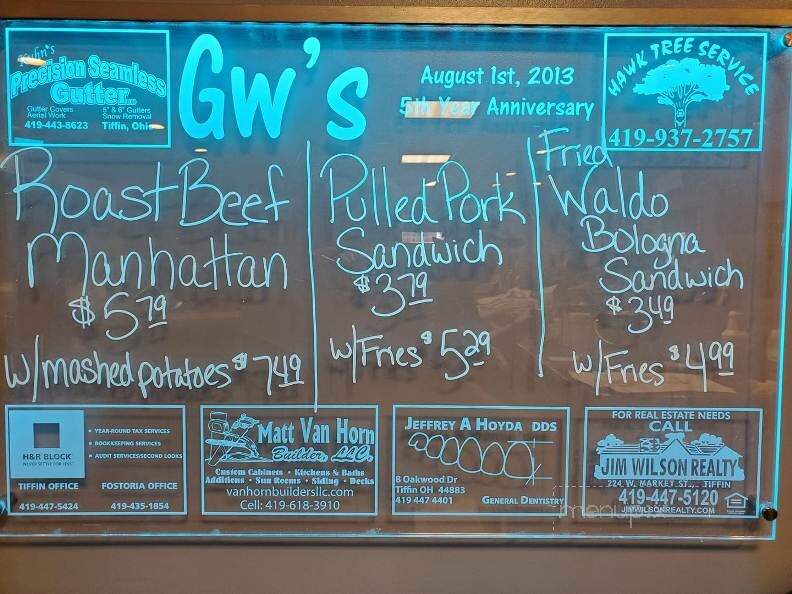 Kuhn's
Precision Seamless
Gutter LLC
Gutter Covers
Aerial Work
5" & 6" Gutters
Snow Removal
419-443-8623 Tiffin, Ohio
Gw's
August 1st, 2013
5th Year Anniversary
HAWK TREE SERVICE
419-937-2757
Roast Beef
Manhattan
$5 79
w/mashed potatoes $7 49
Pulled Pork
Sandwich
$3 79
w/Fries $5 29
Fried
Waldo
Bologna
Sandwich
$3 49
w/Fries $4 99
H&R BLOCK
NEVER SETTLE FOR LESS
• YEAR-ROUND TAX SERVICES
• BOOKKEEPING SERVICES
• AUDIT SERVICES/SECOND LOOKS
TIFFIN OFFICE
419-447-5424
FOSTORIA OFFICE
419-435-1854
Matt Van Horn
Builder, LLC.
Custom Cabinets • Kitchens & Baths
Additions • Sun Rooms • Siding • Decks
vanhornbuildersllc.com
Cell: 419-618-3910
JEFFREY A HOYDA DDS
8 Oakwood Dr
Tiffin OH 44883
419 447 4401
GENERAL DENTISTRY
FOR REAL ESTATE NEEDS
CALL
JIM WILSON REALTY
224 W. MARKET ST., TIFFIN
419-447-5120
JIMWILSONREALTY.COM